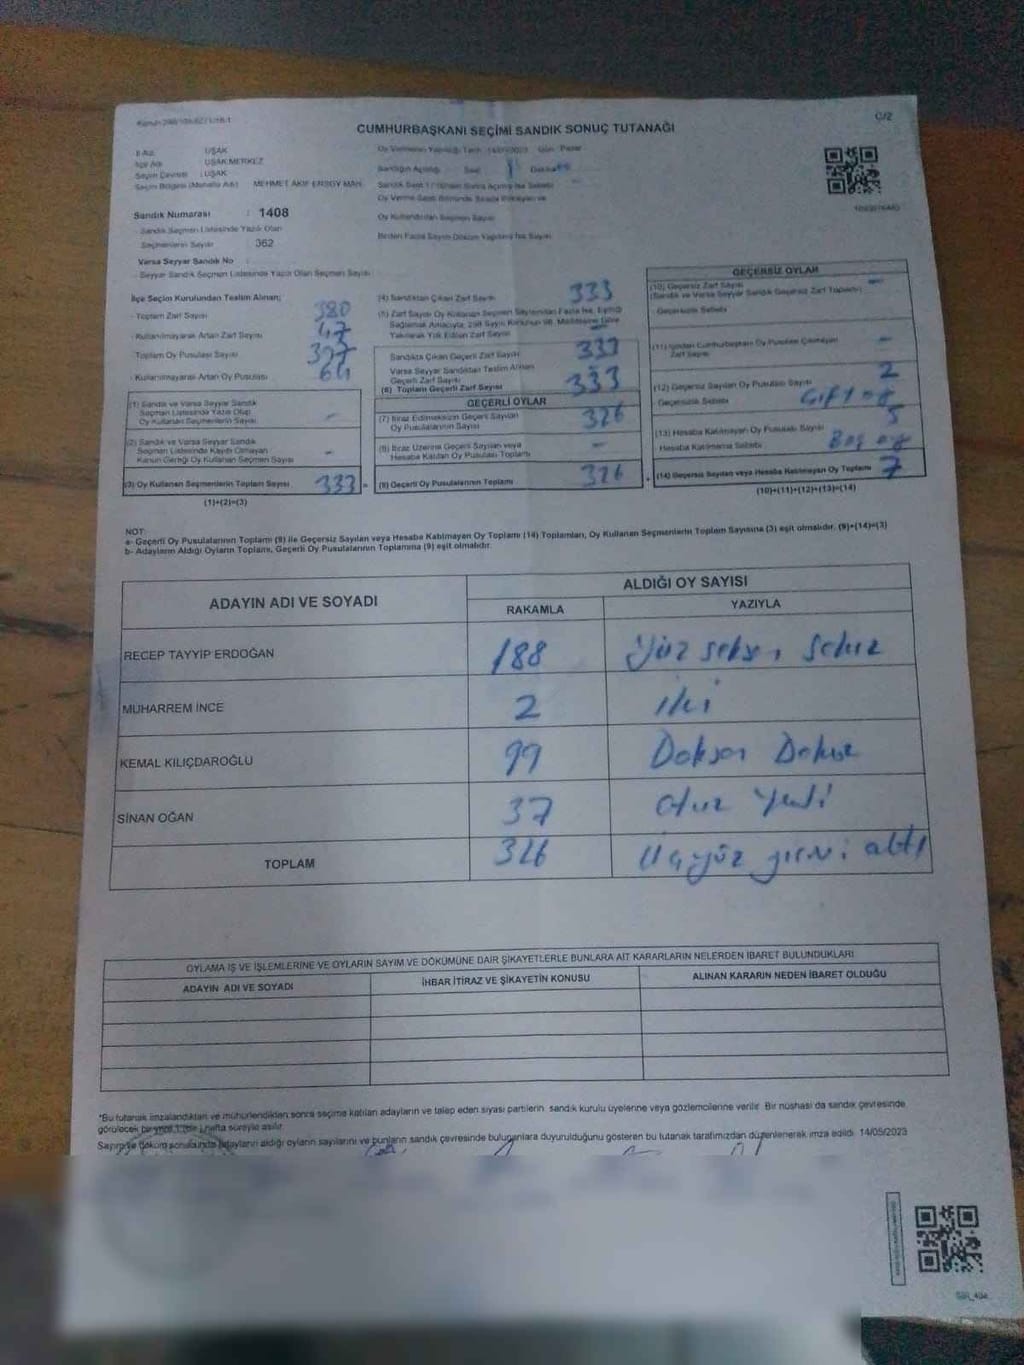 CUMHURBAŞKANI SEÇİMİ SANDIK SONUÇ TUTANAĞI
C/2
İl Adı : UŞAK
İlçe Adı : UŞAK MERKEZ
Seçim Çevresi : UŞAK
Seçim Bölgesi (Mahalle Adı) : MEHMET AKİF ERSOY MAH.
Sandık Numarası : 1408
Sandık Seçmen Listesinde Yazılı Olan
Seçmenlerin Sayısı : 362
Varsa Seyyar Sandık No
Seyyar Sandık Seçmen Listesinde Yazılı Olan Seçmen Sayısı :
Oy Vermenin Yapıldığı Tarih : 14/05/2023 Gün : Pazar
Sandığın Açıldığı Saat
Oy Kullandırılan Seçmen Sayısı
Birden Fazla Sayım Döküm Yapılmış İse Sayısı
İlçe Seçim Kurulundan Teslim Alınan;
Toplam Zarf Sayısı 380
Kullanılmayarak Artan Zarf Sayısı 47
Toplam Oy Pusulası Sayısı
Kullanılmayarak Artan Oy Pusulası
(1) Sandık ve Varsa Seyyar Sandık
Seçmen Listesinde Yazılı Olup
Oy Kullanan Seçmenlerin Sayısı -
(2) Sandık ve Varsa Seyyar Sandık
Seçmen Listesinde Kayıtlı Olmayan
Kanun Gereği Oy Kullanan Seçmen Sayısı -
(3) Oy Kullanan Seçmenlerin Toplam Sayısı 333 =
(1)+(2)=(3)
(4) Sandıktan Çıkan Zarf Sayısı 333
(5) Zarf Sayısı Oy Kullanan Seçmen Sayısından Fazla İse, Eşitliği
Sağlamak Amacıyla, 298 Sayılı Kanunun 98. Maddesine Göre
Yakılarak Yok Edilen Zarf Sayısı -
Sandıkta Çıkan Geçerli Zarf Sayısı 333
Varsa Seyyar Sandıktan Teslim Alınan
Geçerli Zarf Sayısı
(6) Toplam Geçerli Zarf Sayısı 333
GEÇERLİ OYLAR
(7) İtiraz Edilmeksizin Geçerli Sayılan
Oy Pusulalarının Sayısı 326
(8) İtiraz Üzerine Geçerli Sayılan veya
Hesaba Katılan Oy Pusulası Toplamı -
(9) Geçerli Oy Pusulalarının Toplamı 326 +
GEÇERSİZ OYLAR
(10) Geçersiz Zarf Sayısı -
(Sandık ve Varsa Seyyar Sandık Geçersiz Zarf Toplamı)
Geçersizlik Sebebi
(11) İçinden Cumhurbaşkanı Oy Pusulası Çıkmayan
Zarf Sayısı -
(12) Geçersiz Sayılan Oy Pusulası Sayısı 2
Geçersizlik Sebebi Çift oy
(13) Hesaba Katılmayan Oy Pusulası Sayısı 5
Hesaba Katılmama Sebebi Boş oy
(14) Geçersiz Sayılan veya Hesaba Katılmayan Oy Toplamı 7
(10)+(11)+(12)+(13)=(14)
NOT:
a- Geçerli Oy Pusulalarının Toplamı (9) ile Geçersiz Sayılan veya Hesaba Katılmayan Oy Toplamı (14) Toplamları, Oy Kullanan Seçmenlerin Toplam Sayısına (3) eşit olmalıdır. (9)+(14)=(3)
b- Adayların Aldığı Oyların Toplamı, Geçerli Oy Pusulalarının Toplamına (9) eşit olmalıdır.
ADAYIN ADI VE SOYADI ALDIĞI OY SAYISI
RAKAMLA YAZIYLA
RECEP TAYYİP ERDOĞAN 188 Yüz seksen sekiz
MUHARREM İNCE 2 iki
KEMAL KILIÇDAROĞLU 99 Doksan Dokuz
SİNAN OĞAN 37 otuz Yedi
TOPLAM 326 Üçyüz yirmi altı
OYLAMA İŞ VE İŞLEMLERİNE VE OYLARIN SAYIM VE DÖKÜMÜNE DAİR ŞİKAYETLERLE BUNLARA AİT KARARLARIN NELERDEN İBARET BULUNDUKLARI
ADAYIN ADI VE SOYADI İHBAR İTİRAZ VE ŞİKAYETİN KONUSU ALINAN KARARIN NEDEN İBARET OLDUĞU
*Bu tutanak imzalandıktan ve mühürlendikten sonra seçime katılan adayların ve talep eden siyasi partilerin sandık kurulu üyelerine veya gözlemcilerine verilir. Bir nüshası da sandık çevresinde
görülecek bir yere 1 (bir) hafta süreyle asılır.
Sayım ve döküm sonucunda adayların aldığı oyların sayılarını ve bunların sandık çevresinde bulunanlara duyurulduğunu gösteren bu tutanak tarafımızdan düzenlenerek imza edildi. 14/05/2023